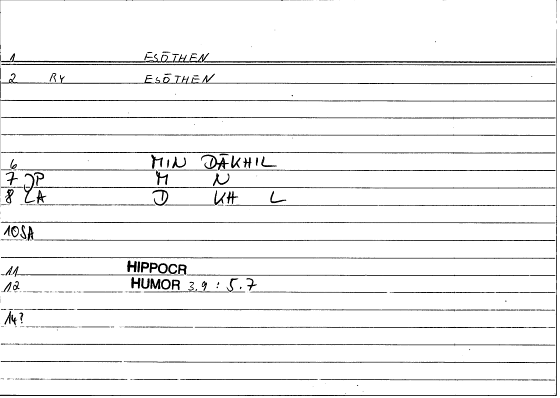 1 ESŌTHEN
2 RY ESŌTHEN
6 MIN DĀKHIL
7 JP M N
8 LA D KH L
10SA
11 HIPPOCR
12 HUMOR 3.9 : 5.7
14?